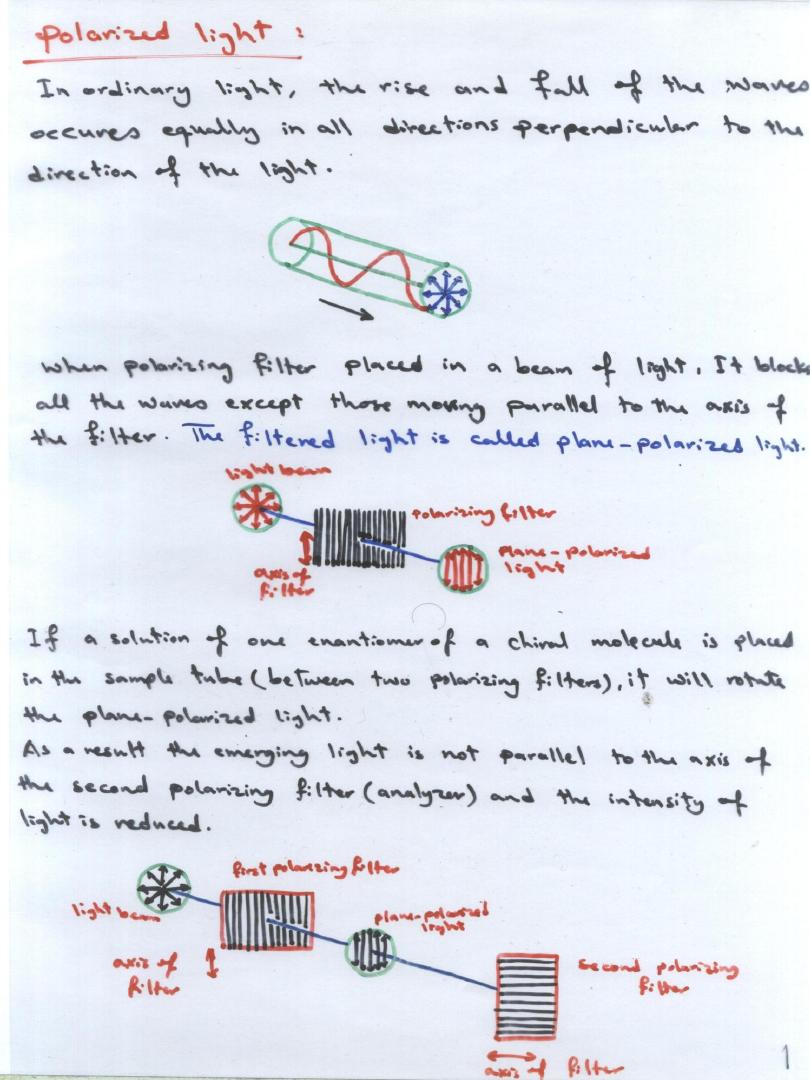 Polarized light :
In ordinary light, the rise and fall of the waves
occures equally in all directions perpendicular to the
direction of the light.
When polarizing filter placed in a beam of light, It blocks
all the waves except those moving parallel to the axis of
the filter. The filtered light is called plane-polarized light.
light beam
polarizing filter
plane-polarized
light
axis of
filter
If a solution of one enantiomer of a chiral molecule is placed
in the sample tube (between two polarizing filters), it will rotate
the plane-polarized light.
As a result the emerging light is not parallel to the axis of
the second polarizing filter (analyzer) and the intensity of
light is reduced.
first polarizing filter
light beam
plane-polarized
light
axis of
filter
second polarizing
filter
axis of filter
1